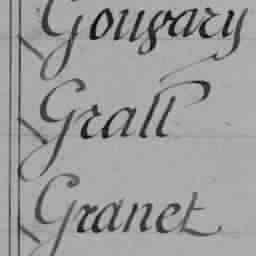 Gougary
Grall
Granet